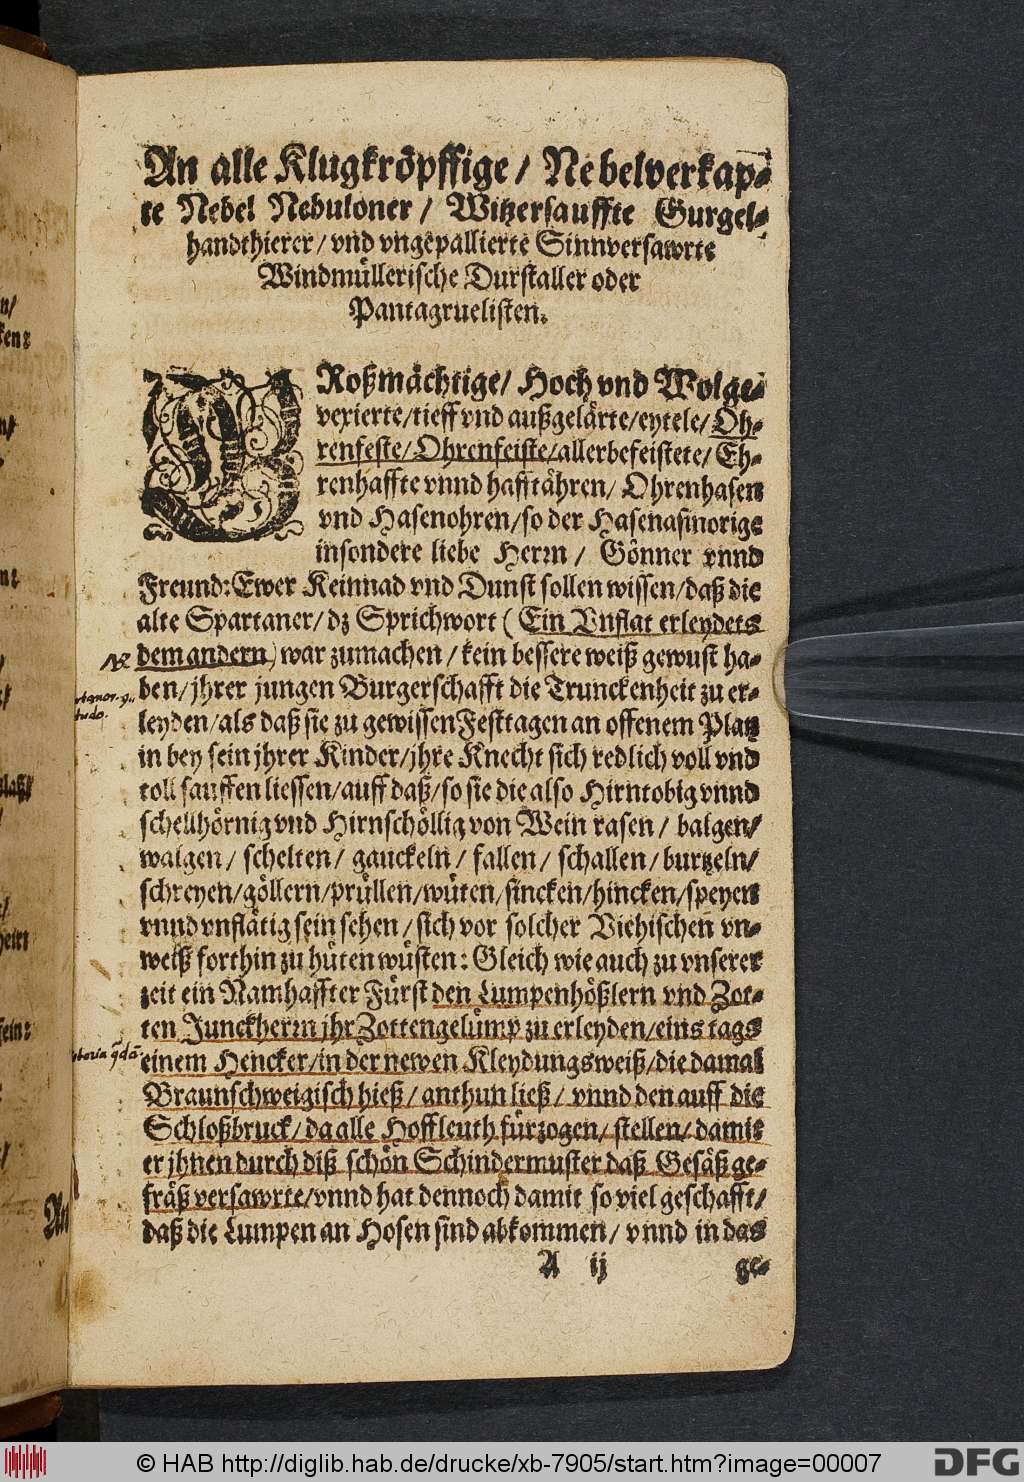 An alle Klugkröpffige / Nebelverkap-
te Nebel Nebuloner / Witzersauffte Gurgel-
handthierer / vnd vngepallierte Sinnversawrte
Windmüllerische Durstaller oder
Pantagruelisten.
GRoßmächtige / Hoch vnd Wolge-
vexierte / tieff vnd außgelärte / eytele / Oh-
renfeste / Ohrenfeiste / allerbefeistete / Eh-
renhaffte vnnd hafftähren / Ohrenhasen
vnd Hasenohren / so der Hasenasinorige
insondere liebe Herrn / Gönner vnnd
Freund: Ewer Keinnad vnd Dunst sollen wissen / daß die
alte Spartaner / dz Sprichwort ( Ein Vnflat erleydets
dem andern ) war zumachen / kein bessere weiß gewust ha-
ben / jhrer jungen Burgerschafft die Trunckenheit zu er-
leyden / als daß sie zu gewissen Festtagen an offenem Platz
in bey sein jhrer Kinder / jhre Knecht sich redlich voll vnd
toll sauffen liessen / auff daß / so sie die also Hirntobig vnnd
schellhörnig vnd Hirnschöllig von Wein rasen / balgen /
walgen / schelten / gauckeln / fallen / schallen / burtzeln /
schreyen / göllern / prüllen / wüten / sincken / hincken / speyen
vnnd vnflätig sein sehen / sich vor solcher Viehischen vn-
weiß forthin zu hüten wüsten: Gleich wie auch zu vnserer
zeit ein Namhaffter Fürst den Lumpenhößlern vnd Zot-
ten Junckherrn jhr Zottengelümp zu erleyden / eins tags
einem Hencker / in der newen Kleydungsweiß / die damal
Braunschweigisch hieß / anthun ließ / vnnd den auff die
Schloßbruck / da alle Hoffleuth fürzogen / stellen / damit
er jhnen durch diß schön Schindermuster daß Gesäß ge-
fräß versawrte / vnnd hat dennoch damit so viel geschafft /
daß die Lumpen an Hosen sind abkommen / vnnd in das
A ij ge-
An
© HAB http://diglib.hab.de/drucke/xb-7905/start.htm?image=00007
DFG